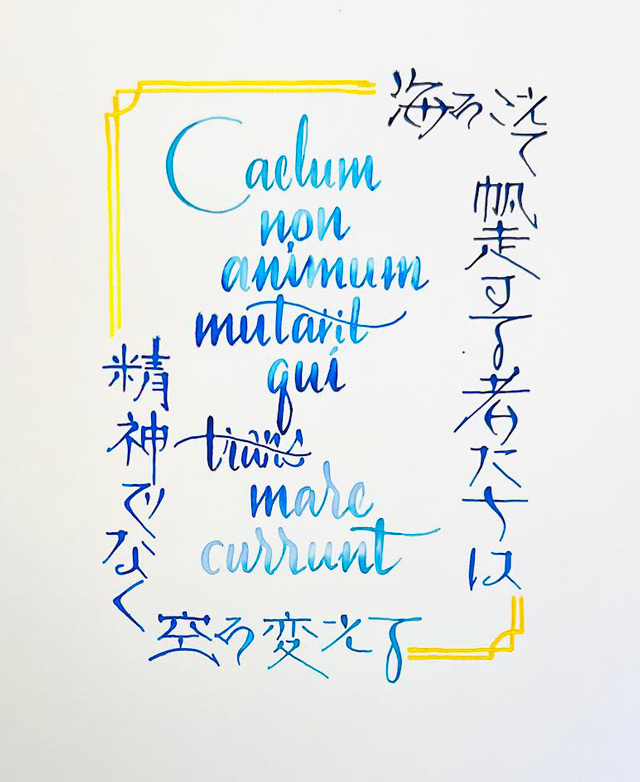 Caelum
non
animum
mutant
qui
trans
mare
currunt
海をこえて
帆走する者たちは
精神でなく
空を変える